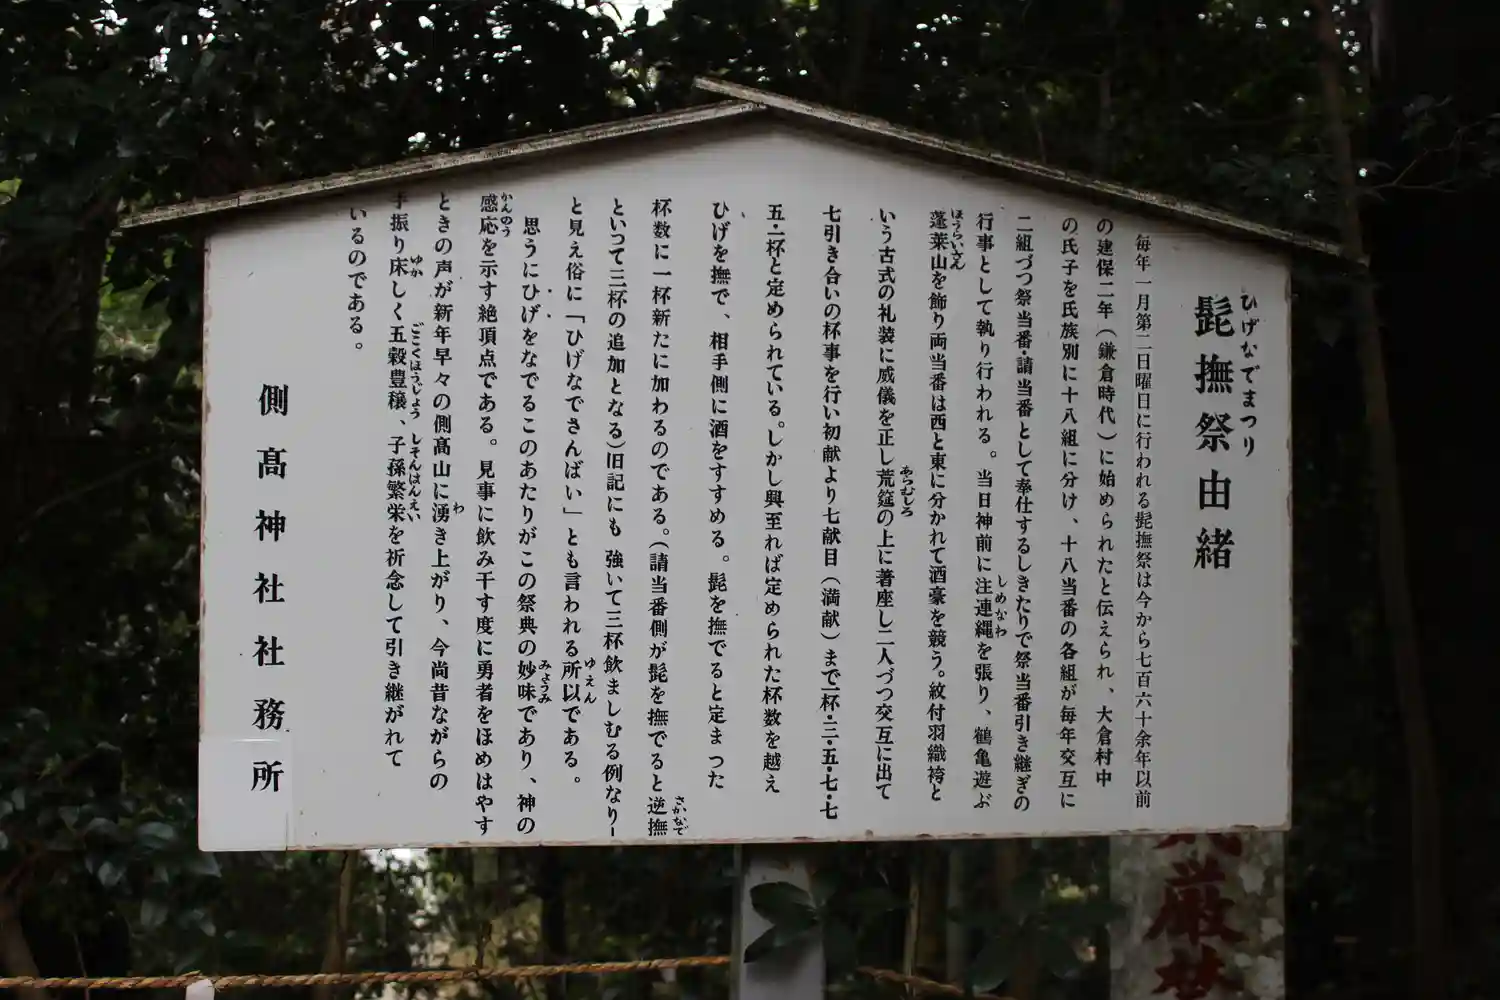 ひげなでまつり
髭撫祭由緒
毎年一月第二日曜日に行われる髭撫祭は今から七百六十余年以前
の建保二年(鎌倉時代)に始められたと伝えられ、大倉村中
の氏子を氏族別に十八組に分け、十八当番の各組が毎年交互に
二組づつ祭当番・請当番として奉仕するしきたりで祭当番引き継ぎの
しめなわ
行事として執り行われる。当日神前に注連縄を張り、鶴亀遊ぶ
ほうらいさん
蓬萊山を飾り両当番は西と東に分かれて酒豪を競う。紋付羽織袴と
あらむしろ
いう古式の礼装に威儀を正し荒筵の上に著座し二人づつ交互に出て
七引き合いの杯事を行い初献より七献目(満献)まで一杯・三・五・七・七
五・一杯と定められている。しかし興至れば定められた杯数を越え
ひげを撫で、相手側に酒をすすめる。髭を撫でると定まった
さかなで
杯数に一杯新たに加わるのである。(請当番側が髭を撫でると逆撫
といつて三杯の追加となる)旧記にも 強いて三杯飲ましむる例なり―
ゆえん
と見え俗に「ひげなでさんばい」とも言われる所以である。
みょうみ
思うにひげをなでるこのあたりがこの祭典の妙味であり、神の
かんのう
感応を示す絶頂点である。見事に飲み干す度に勇者をほめはやす
わ
ときの声が新年早々の側高山に湧き上がり、今尚昔ながらの
ゆか ごこくほうじょう しそんはんえい
手振り床しく五穀豊穣、子孫繁栄を祈念して引き継がれて
いるのである。
側髙神社社務所
厳禁